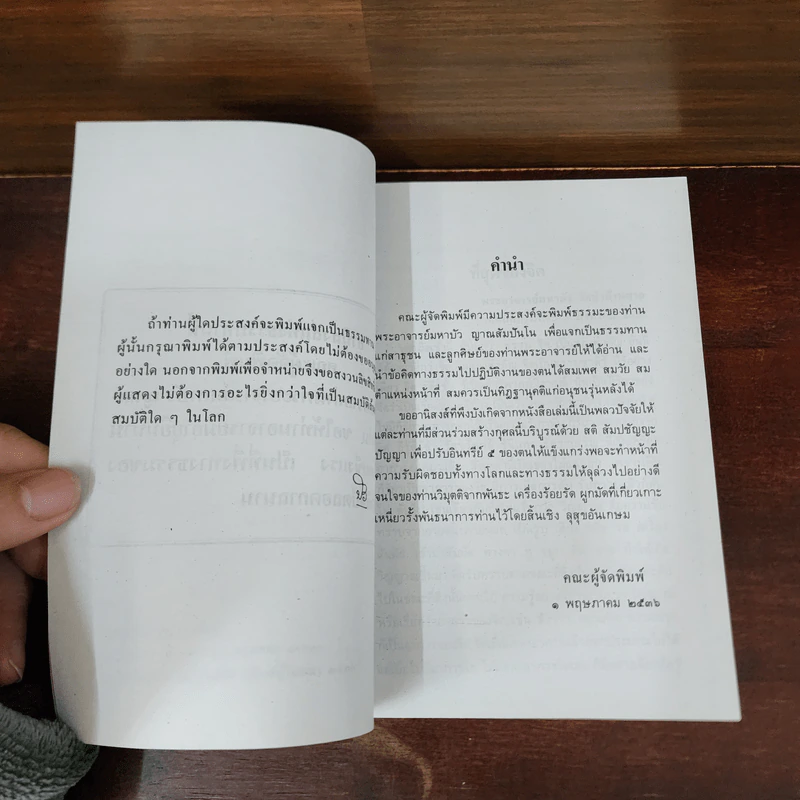 ถ้าท่านผู้ใดประสงค์จะพิมพ์แจกเป็นธรรมทาน
ผู้นั้นกรุณาพิมพ์ได้ตามประสงค์โดยไม่ต้องขอ
อย่างใด นอกจากพิมพ์เพื่อจำหน่ายจึงขอสงวนลิขสิทธิ์
ผู้แสดงไม่ต้องการอะไรยิ่งกว่าใจที่เป็นสมบัติ
สมบัติใด ๆ ในโลก
คำนำ
คณะผู้จัดพิมพ์มีความประสงค์จะพิมพ์ธรรมะของท่าน
พระอาจารย์มหาบัว ญาณสัมปันโน เพื่อแจกเป็นธรรมทาน
แก่สาธุชน และลูกศิษย์ของท่านพระอาจารย์ให้ได้อ่าน และ
นำข้อคิดทางธรรมไปปฏิบัติงานของตนได้สมเพศ สมวัย สม
ตำแหน่งหน้าที่ สมควรเป็นทิฏฐานุคติแก่อนุชนรุ่นหลังได้
ขออานิสงส์ที่พึงบังเกิดจากหนังสือเล่มนี้เป็นพลวปัจจัยให้
แต่ละท่านที่มีส่วนร่วมสร้างกุศลนี้บริบูรณ์ด้วย สติ สัมปชัญญะ
ปัญญา เพื่อปรับอินทรีย์ ๕ ของตนให้แข็งแกร่งพอจะทำหน้าที่
ความรับผิดชอบทั้งทางโลกและทางธรรมให้ลุล่วงไปอย่างดี
จนใจของท่านวิมุตติจากพันธะ เครื่องร้อยรัด ผูกมัดที่เกี่ยวเกาะ
เหนี่ยวรั้งพันธนาการท่านไว้โดยสิ้นเชิง ลุสุขอันเกษม
คณะผู้จัดพิมพ์
๑ พฤษภาคม ๒๕๓๖